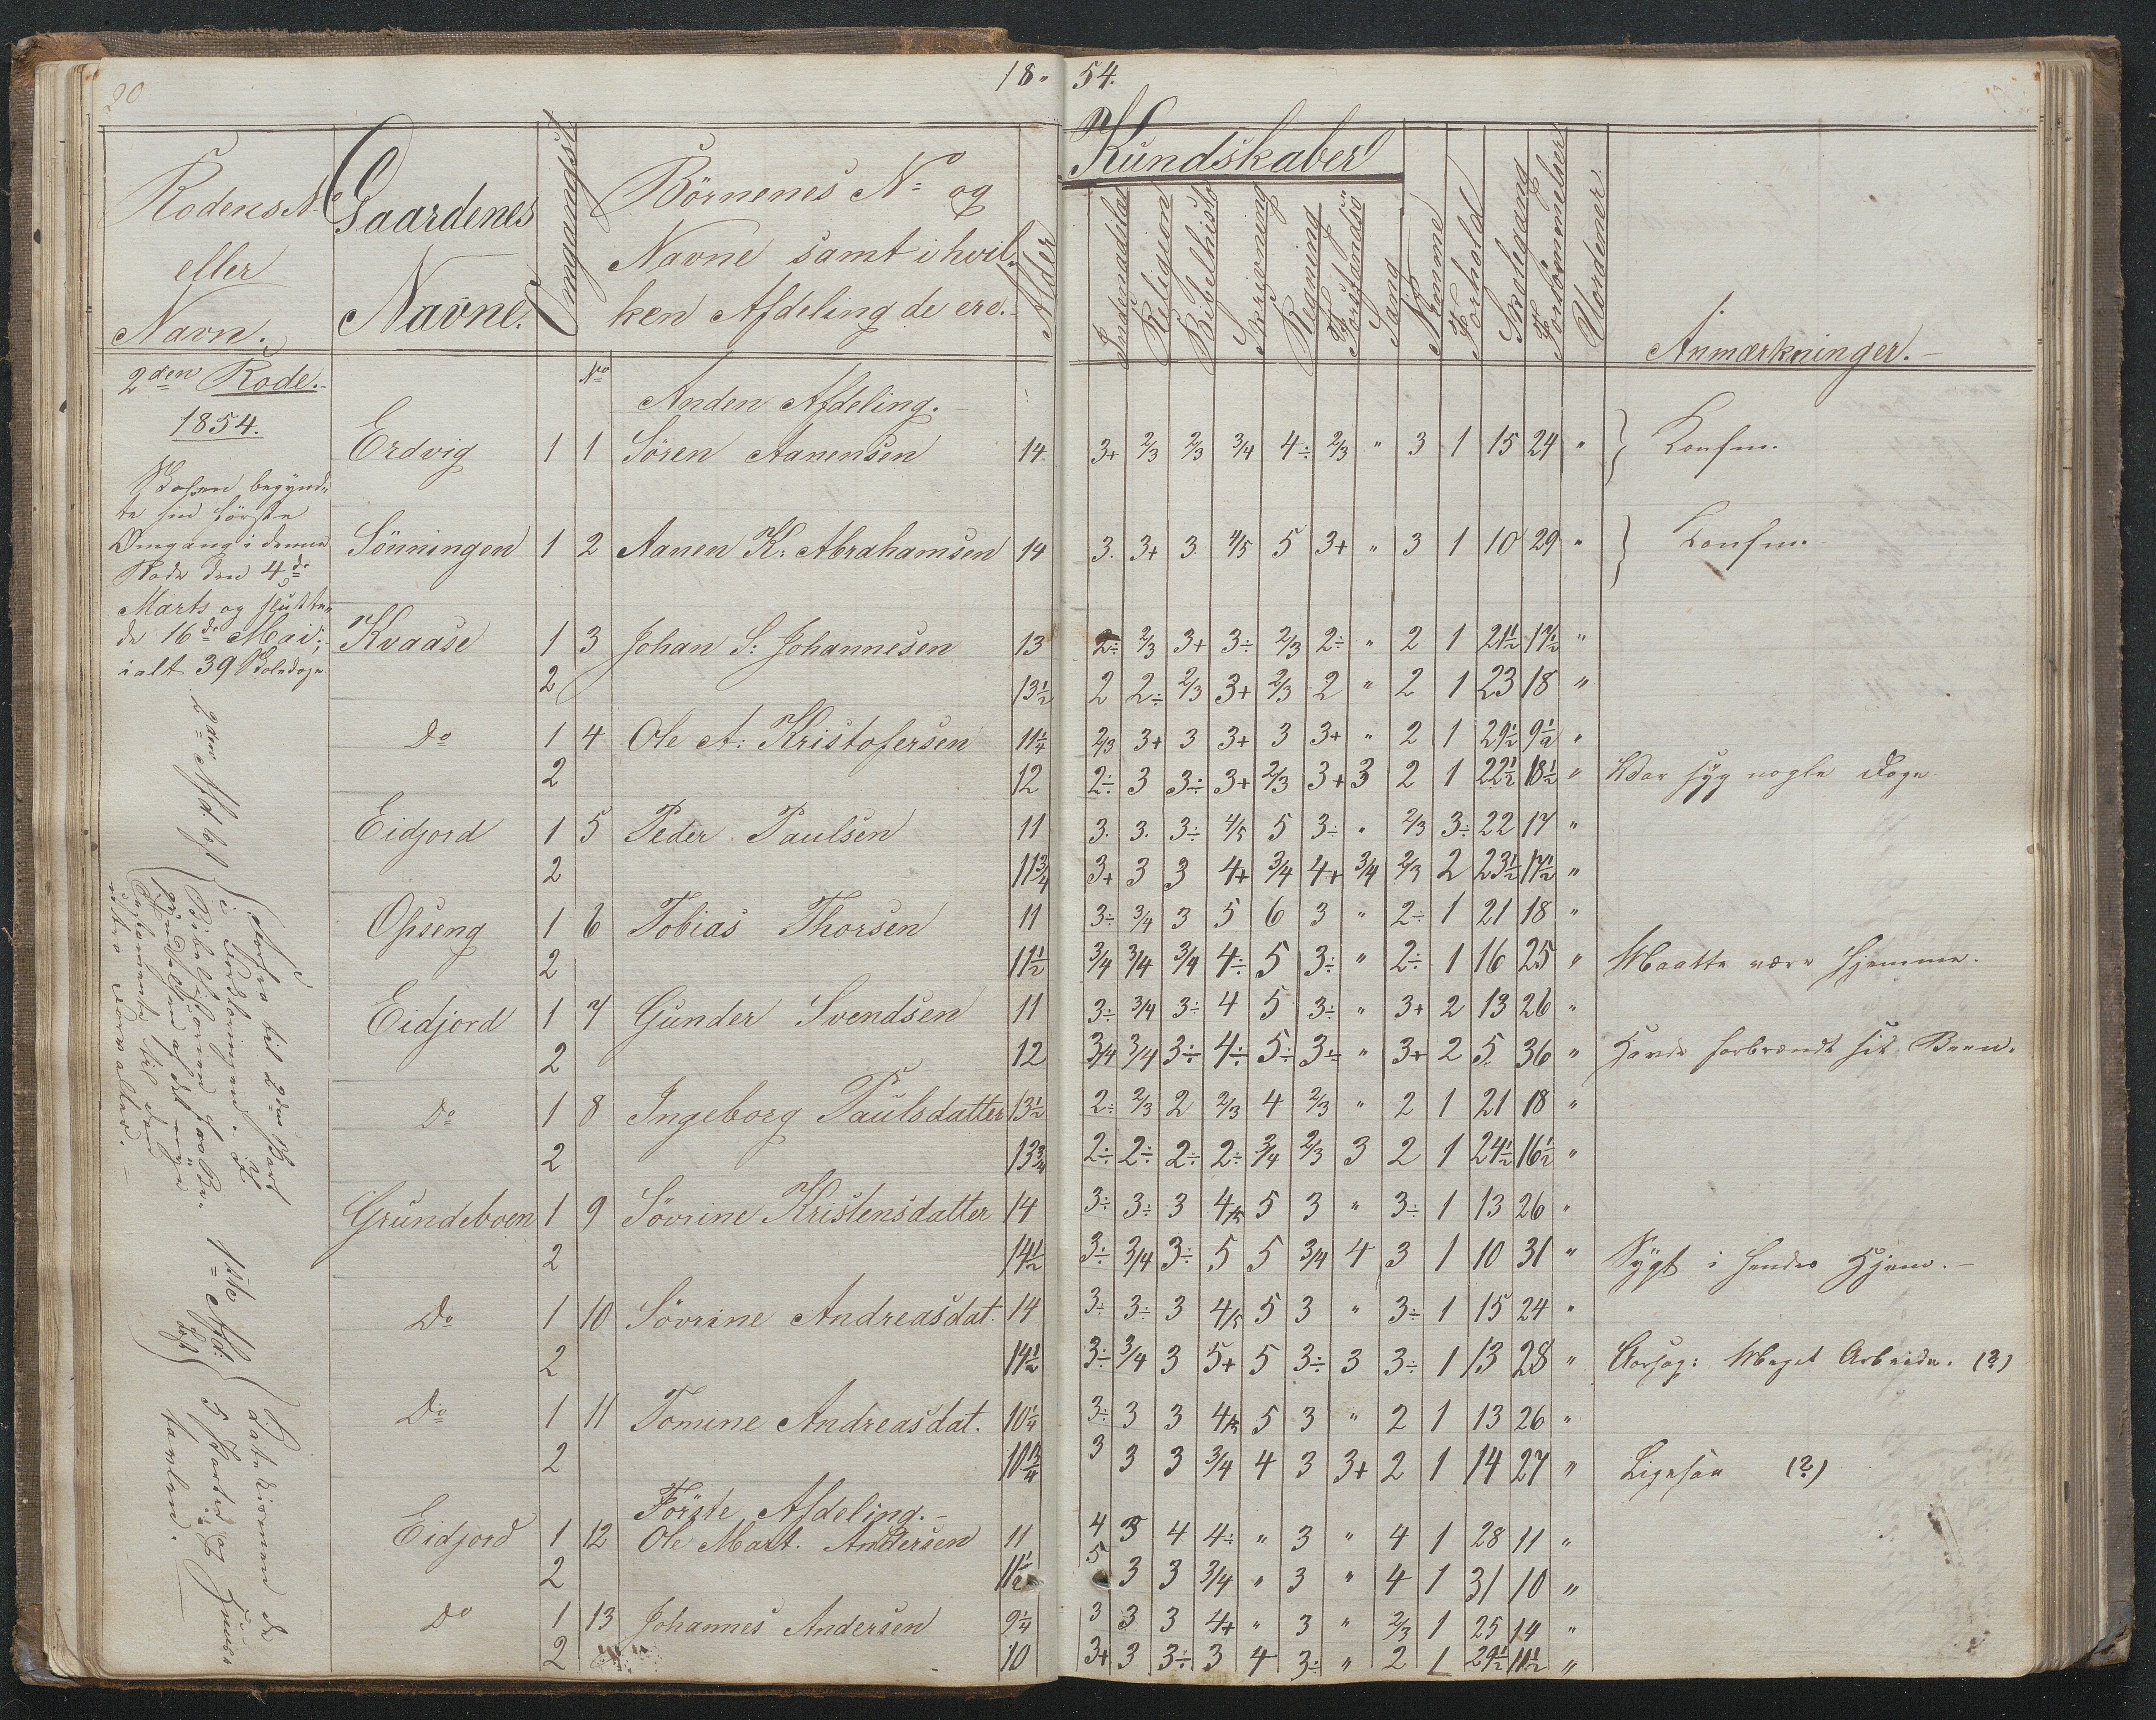 20
18" 54.
Rodens No
eller
Navn.
Gaardenes
Navne.
Omgangst
Börnenes No og
Navne samt i hvil-
ken Afdeling de ere.
Alder
Kundskaber
Indenadslæs
Religion
Bibelhisto
Skrivning
Regning
Forstandsö
Sang
Nemme
Forhold
Skolegang
Forsömmelser
Uordener
Anmærkninger.
2den Rode.
1854.
Skolen begynd-
te sin förste
Omgang i denne
Rode den 4de
Marts og slutte-
de 16de Mai;
ialt 39 Skoledage.
No
Anden Afdeling.
Erdvig 1 1 Sören Aanensen 14 3+ 2/3 2/3 3/4 4÷ 2/3 " 3 1 15 24 " } Confm.
Sönningen 1 2 Aanen K: Abrahamsen 14 3. 3+ 3. 4/5 5 3+ " 3 1 10 29 " } Confm.
Kvaase 1 3 Johan S: Johannesen 13 2÷ 2/3 3+ 3÷ 2/3 2÷ " 2 1 21½ 17½ "
2 13½ 2 2÷ 2/3 3+ 2/3 2 " 2 1 23 18 "
Do 1 4 Ole A: Kristofersen 11¼ 2/3 3+ 3 3+ 3 3+ " 2 1 29½ 9½ "
2 12 2÷ 3 3÷ 3+ 2/3 3+ 3 2 1 22½ 18½ " Var syg nogle Dage
Eidjord 1 5 Peder Paulsen 11 3. 3. 3÷ 4/5 5 3÷ " 2/3 3÷ 22 17 "
2 11¾ 3+ 3 3 4+ 3/4 4+ 3/4 2/3 2 23½ 17½ "
Opseng 1 6 Tobias Thorsen 11 3÷ 3/4 3 5 6 3 " 2÷ 1 21 18 "
2 11½ 3/4 3/4 3/4 4÷ 5 3÷ " 2÷ 1 16 25 " Maatte være hjemme.
Eidjord 1 7 Gunder Svendsen 11 3÷ 3/4 3÷ 4 5 3÷ " 3+ 2 13 26 "
2 12 3/4 3/4 3÷ 4÷ 5÷ 3÷ " 3+ 2 5 36 " Havde forbrændt sit Been.
Do 1 8 Ingeborg Paulsdatter 13½ 2÷ 2/3 2 2/3 4 2/3 " 2 1 21 18 "
2 13¾ 2÷ 2÷ 2÷ 2÷ 3/4 2/3 3 2 1 24½ 16½ "
Grundeboen 1 9 Sövrine Kristensdatter 14 3÷ 3÷ 3 4/5 5 3 " 3÷ 1 13 26 "
2 14½ 3÷ 3/4 3÷ 5 5 3/4 4 3 1 10 31 " Sygt i hendes Hjem.
Do 1 10 Sövrine Andreasdat. 14 3÷ 3÷ 3 4/5 5 3 " 3÷ 1 15 24 "
2 14½ 3÷ 3/4 3 5+ 5 3÷ 3 3÷ 1 13 28 " Aarsag: Meget Arbeide. (?)
Do 1 11 Tomine Andreasdat. 10¼ 3÷ 3 3 4/5 5 3 " 2 1 13 26 "
2 10¾ 3 3 3 3/4 4 3 3+ 2 1 14 27 " Ligesaa (?)
Förste Afdeling.
Eidjord 1 12 Ole Mart. Andersen 11 4 3 4 4÷ " 3 " 4 1 28 11 "
2 11½ 5 3 3 3/4 " 3 " 4 1 31 10 "
Do 1 13 Johannes Andersen 9¼ 3 3 3 4+ " 3 " 2/3 1 25 14 "
2 10 3+ 3 3÷ 3 4 3÷ " 2 1 29½ 11½ "
2den Afd. lagt
til 2den Part
i Forklaringen.
Bibelhistorien
1ste Afd:
lagt
Catekismen de
3 Parter og Huus-
tavlen.